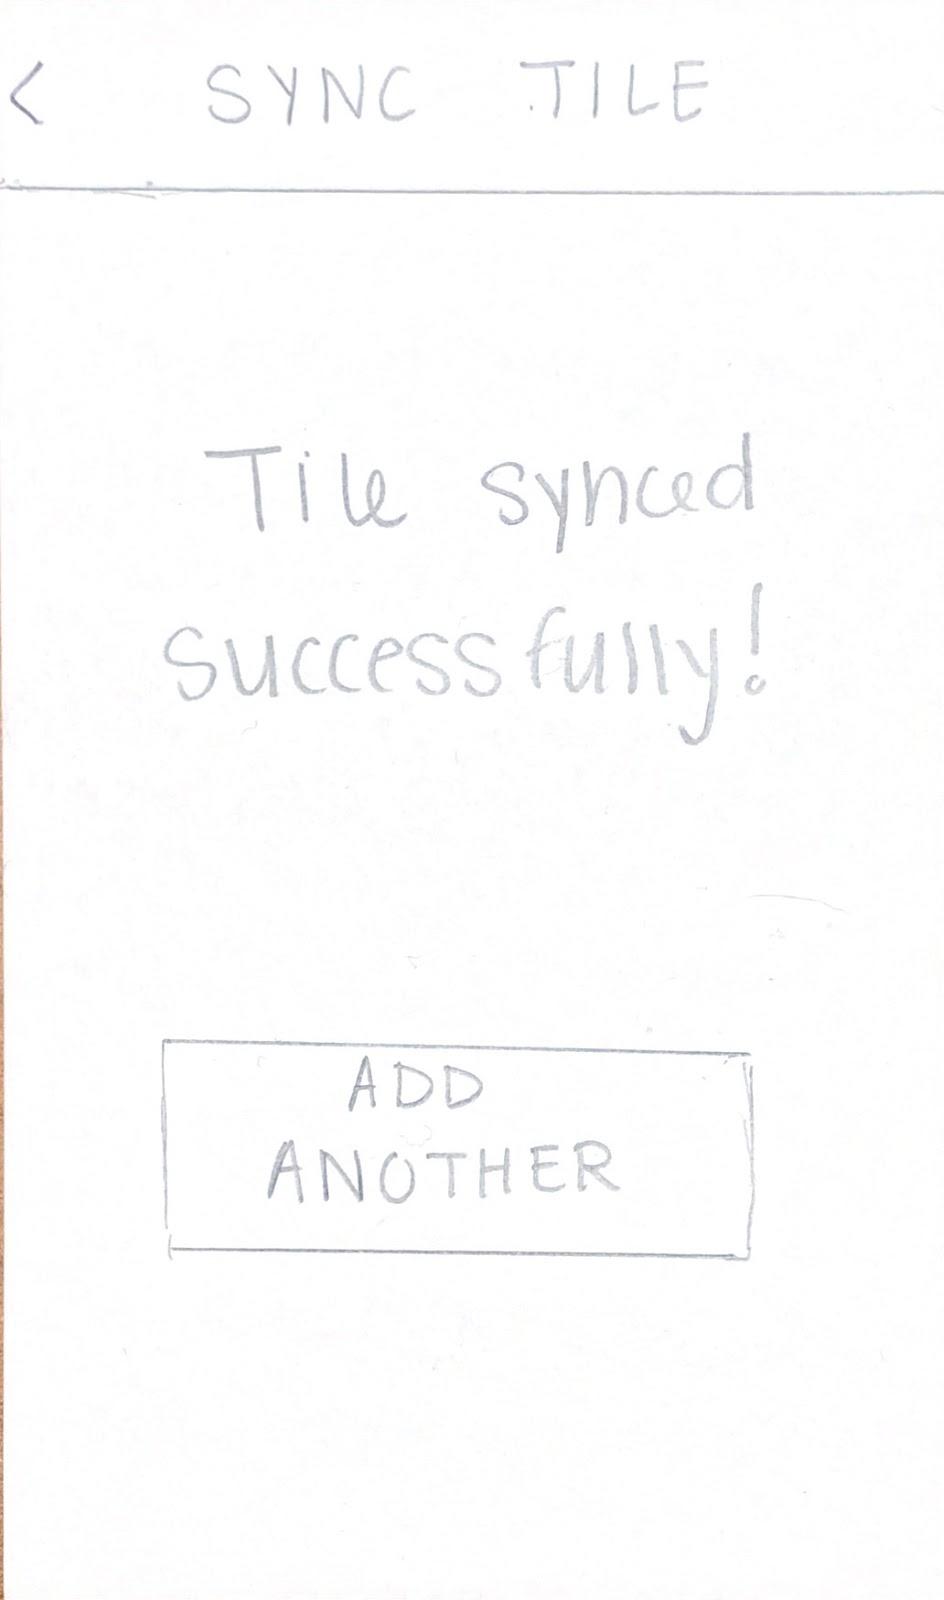 < SYNC TILE
Tile synced
successfully!
ADD
ANOTHER